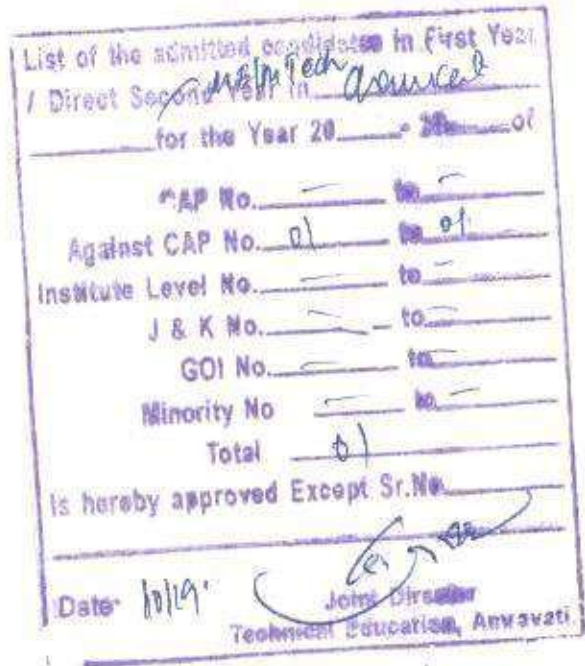 List of the admitted candidates in First Year
/ Direct Second Year in M.E/M.Tech
for the Year 20 - 20 of
CAP No. - to -
Against CAP No. 01 to 01
Institute Level No. - to -
J & K No. - to -
GOI No. - to -
Minority No - to -
Total 01
is hereby approved Except Sr.No.
Date 10/19
Joint Director
Technical Education, Amravati